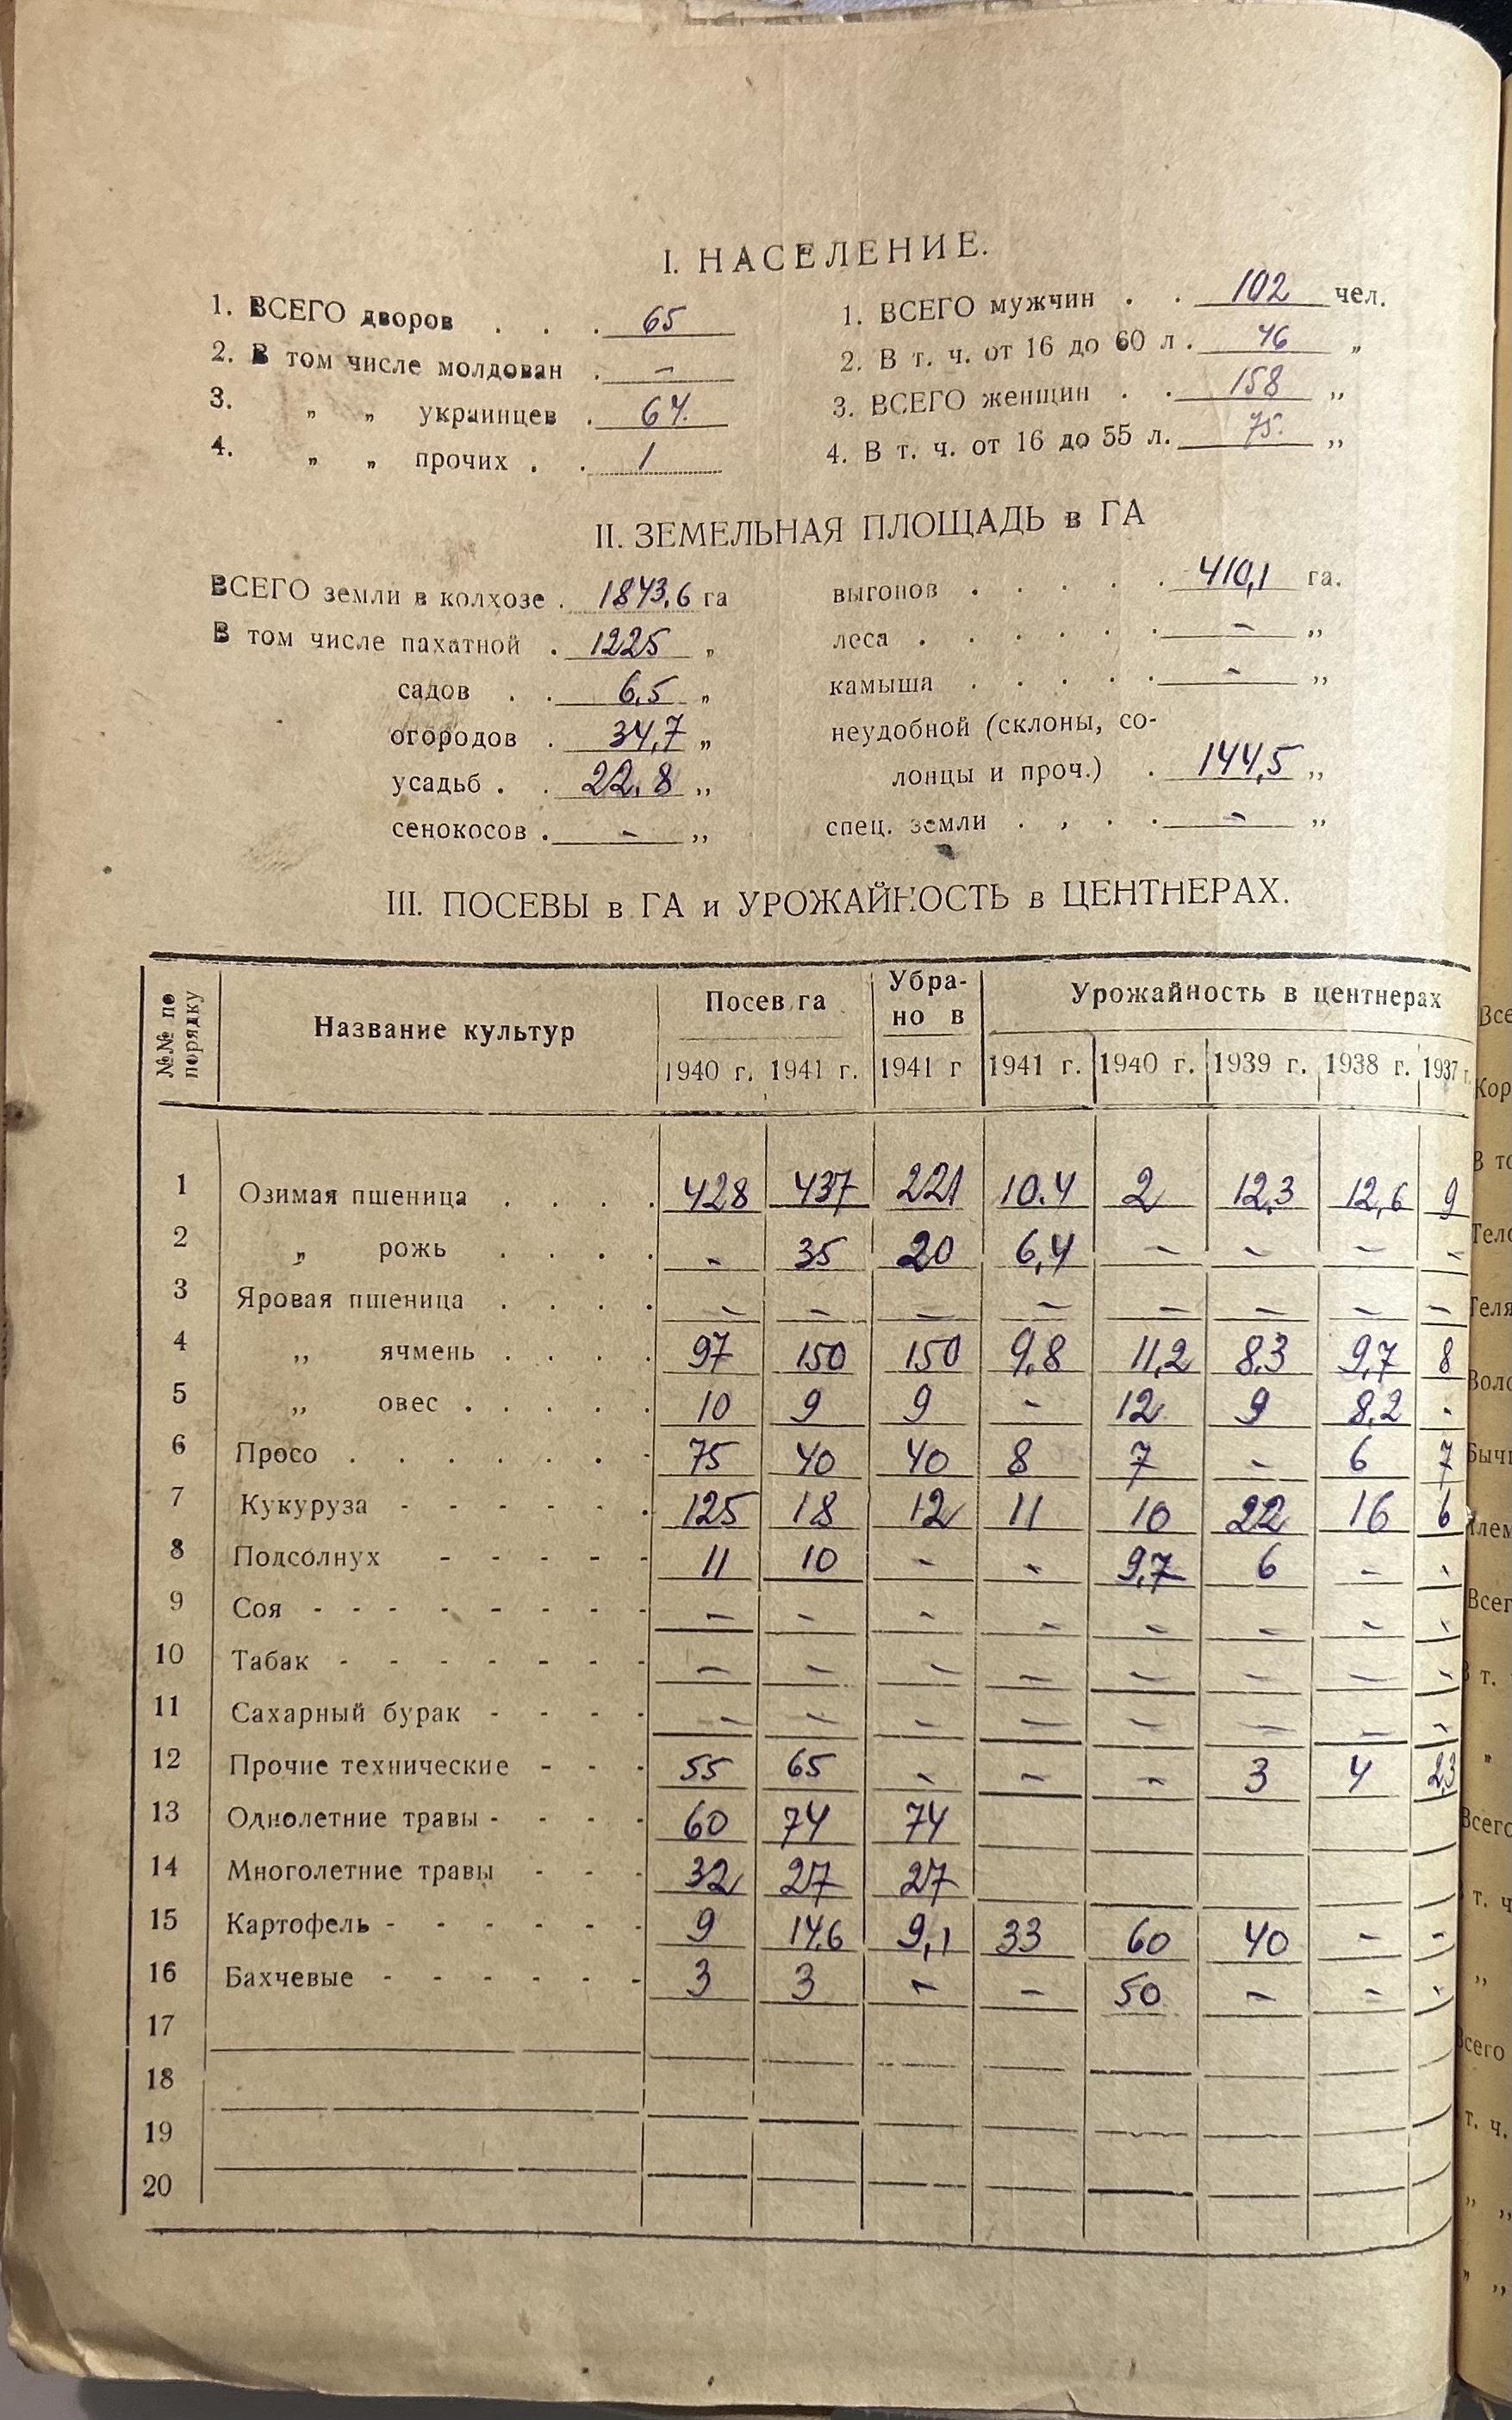 I. НАСЕЛЕНИЕ.
1. ВСЕГО дворов . . . 65
2. В том числе молдован . —
3. „ „ украинцев . 64.
4. „ „ прочих . . 1
1. ВСЕГО мужчин . . 102 чел.
2. В т. ч. от 16 до 60 л . 46 „
3. ВСЕГО женщин . . 158 „
4. В т. ч. от 16 до 55 л. 75. „
II. ЗЕМЕЛЬНАЯ ПЛОЩАДЬ в ГА
ВСЕГО земли в колхозе . 1843,6 га
В том числе пахатной . 1225 „
садов . . 6,5 „
огородов . 34,7 „
усадьб . . 22,8 „
сенокосов . — „
выгонов . . . . . 410,1 га.
леса . . . . . . — „
камыша . . . . . — „
неудобной (склоны, со-
лонцы и проч.) . 144,5 „
спец. земли . , . . — „
III. ПОСЕВЫ в ГА и УРОЖАЙНОСТЬ в ЦЕНТНЕРАХ.
№№ по порядку Название культур Посев га Убра-но в Урожайность в центнерах
1940 г. 1941 г. 1941 г 1941 г. 1940 г. 1939 г. 1938 г. 1937 г.
1 Озимая пшеница . . . . 428 437 221 10.4 2 12,3 12,6 9
2 „ рожь . . . . — 35 20 6,4 — — — —
3 Яровая пшеница . . . . — — — — — — — —
4 „ ячмень . . . . 97 150 150 9,8 11,2 8,3 9,7 8
5 „ овес . . . . . 10 9 9 — 12 9 8,2 -
6 Просо . . . . . . - 75 40 40 8 7 — 6 7
7 Кукуруза - - - - - . 125 18 12 11 10 22 16 6
8 Подсолнух - - - - - 11 10 — — 9,7 6 — —
9 Соя - - - - - - - - — — — — — — — —
10 Табак - - - - - - - — — — — — — — —
11 Сахарный бурак - - - - — — — — — — — —
12 Прочие технические - - - 55 65 — — — 3 4 2,3
13 Однолетние травы - - - - 60 74 74
14 Многолетние травы - - - 32 27 27
15 Картофель - - - - - - 9 14,6 9,1 33 60 40 — —
16 Бахчевые - - - - - - 3 3 — — 50 — — —
17
18
19
20